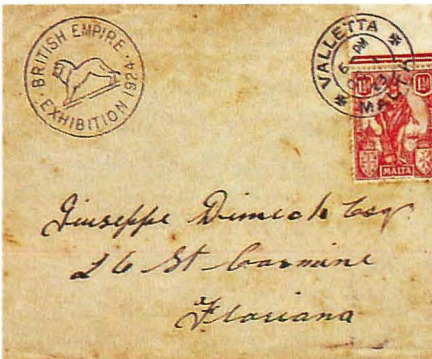 BRITISH EMPIRE
EXHIBITION 1924
VALLETTA
6 PM
MALTA
MALTA
Giuseppe Dimech Esqr
26 St Carmine
Floriana